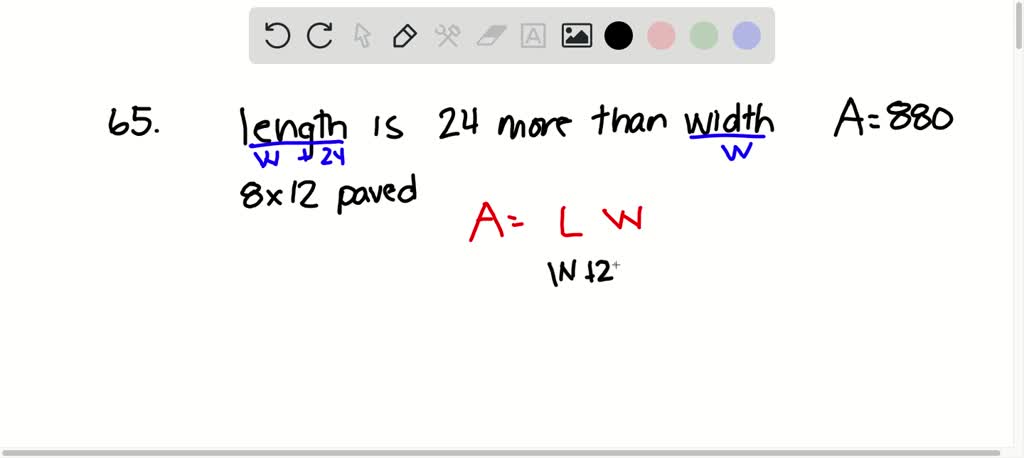 65. length is 24 more than width A=880
W + 24 W
8x12 paved
A= L W
W+2